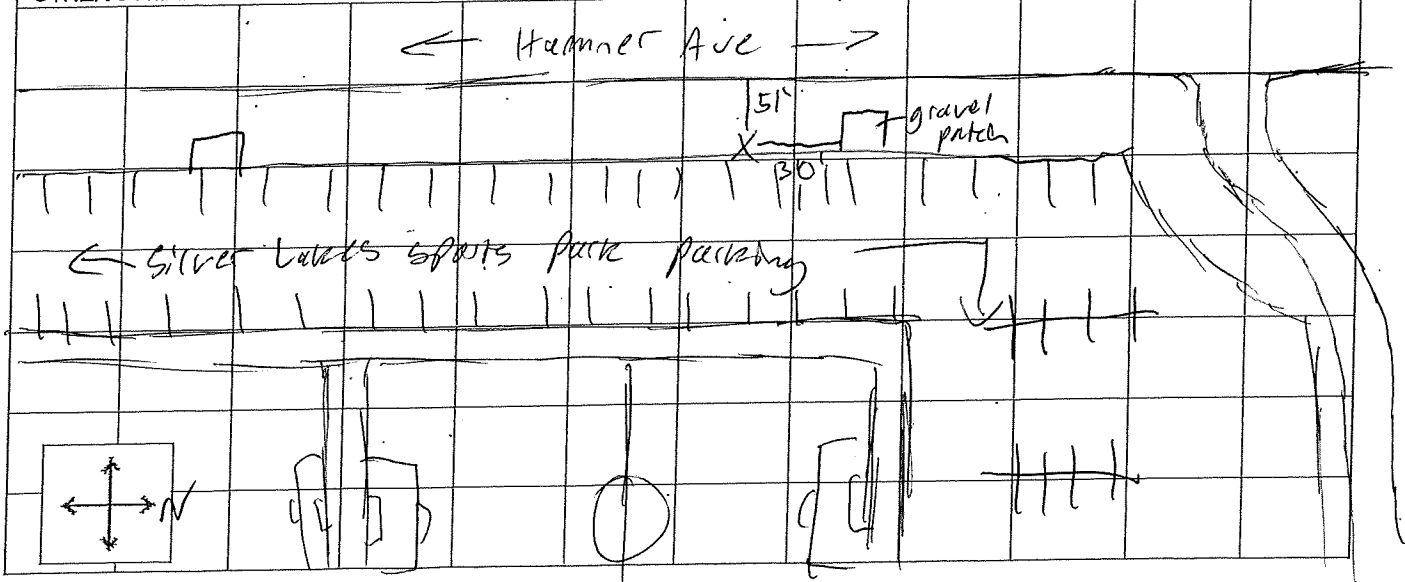 ← Hamner Ave →
51'
X
gravel
patch
30'
← Silver Lakes sports park parking
N